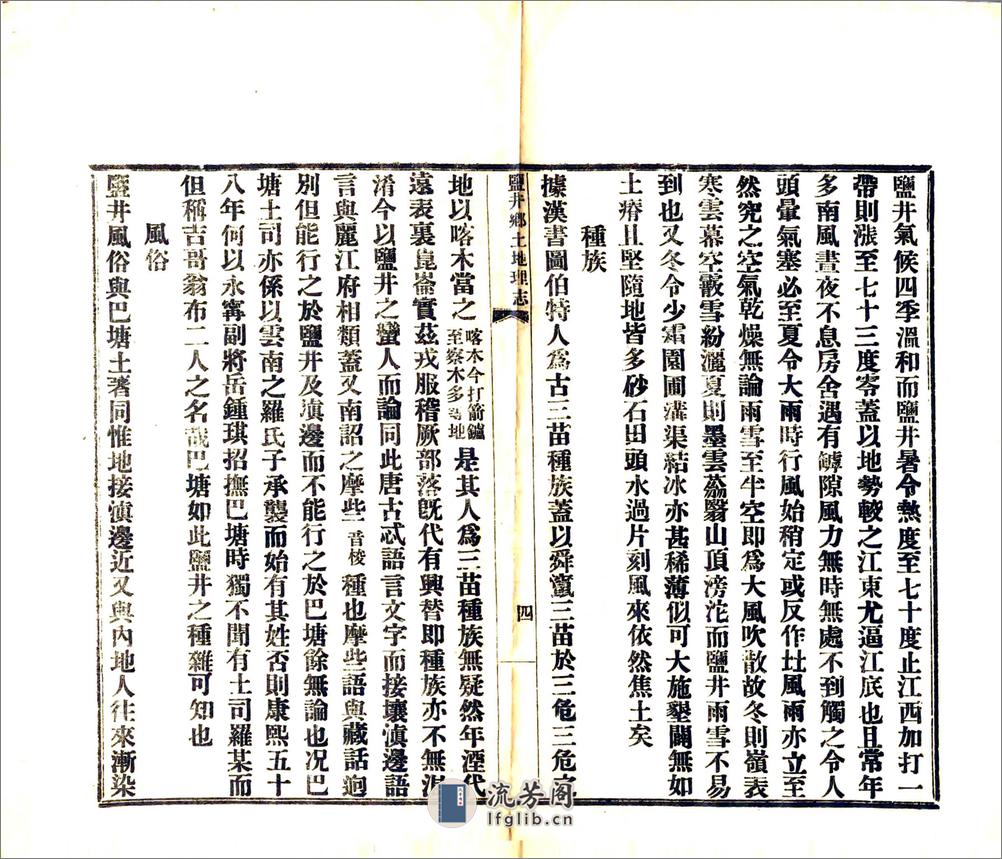 鹽井氣候四季溫和而鹽井暑令熱度至七十度止江西加打一
帶則漲至七十三度零蓋以地勢較之江東尤逼江底也且常年
多南風晝夜不息房舍遇有罅隙風力無時無處不到觸之令人
頭暈氣塞必至夏令大雨時行風始稍定或反作大風雨亦立至
然究之空氣乾燥無論雨雪至半空即為大風吹散故冬則嶺表
寒雲幕空霰雪紛灑夏則墨雲蓊翳山頂滂沱而鹽井雨雪不易
到也又冬令少霜園圃溝渠結冰亦甚稀薄似可大施墾闢無如
土瘠且堅隨地皆多砂石田頭水過片刻風來依然焦土矣
種族
據漢書圖伯特人為古三苗種族蓋以舜竄三苗於三危三危之
鹽井鄉土地理志
四
地以喀木當之喀木今打箭鑪至察木多等地是其人為三苗種族無疑然年湮代
遠表裏崑崙實茲戎服稽厥部落旣代有興替即種族亦不無混
淆今以鹽井之蠻人而論同此唐古忒語言文字而接壤滇邊語
言與麗江府相類蓋又南詔之摩些音梭種也摩些語與藏話迥
別但能行之於鹽井及滇邊而不能行之於巴塘餘無論也况巴
塘土司亦係以雲南之羅氏子承襲而始有其姓否則康熙五十
八年何以永寗副將岳鍾琪招撫巴塘時獨不聞有土司羅某而
但稱吉哥翁布二人之名哉巴塘如此鹽井之種雜可知也
風俗
鹽井風俗與巴塘土著同惟地接滇邊近又與內地人往來漸染
流芳阁
lfglib.cn